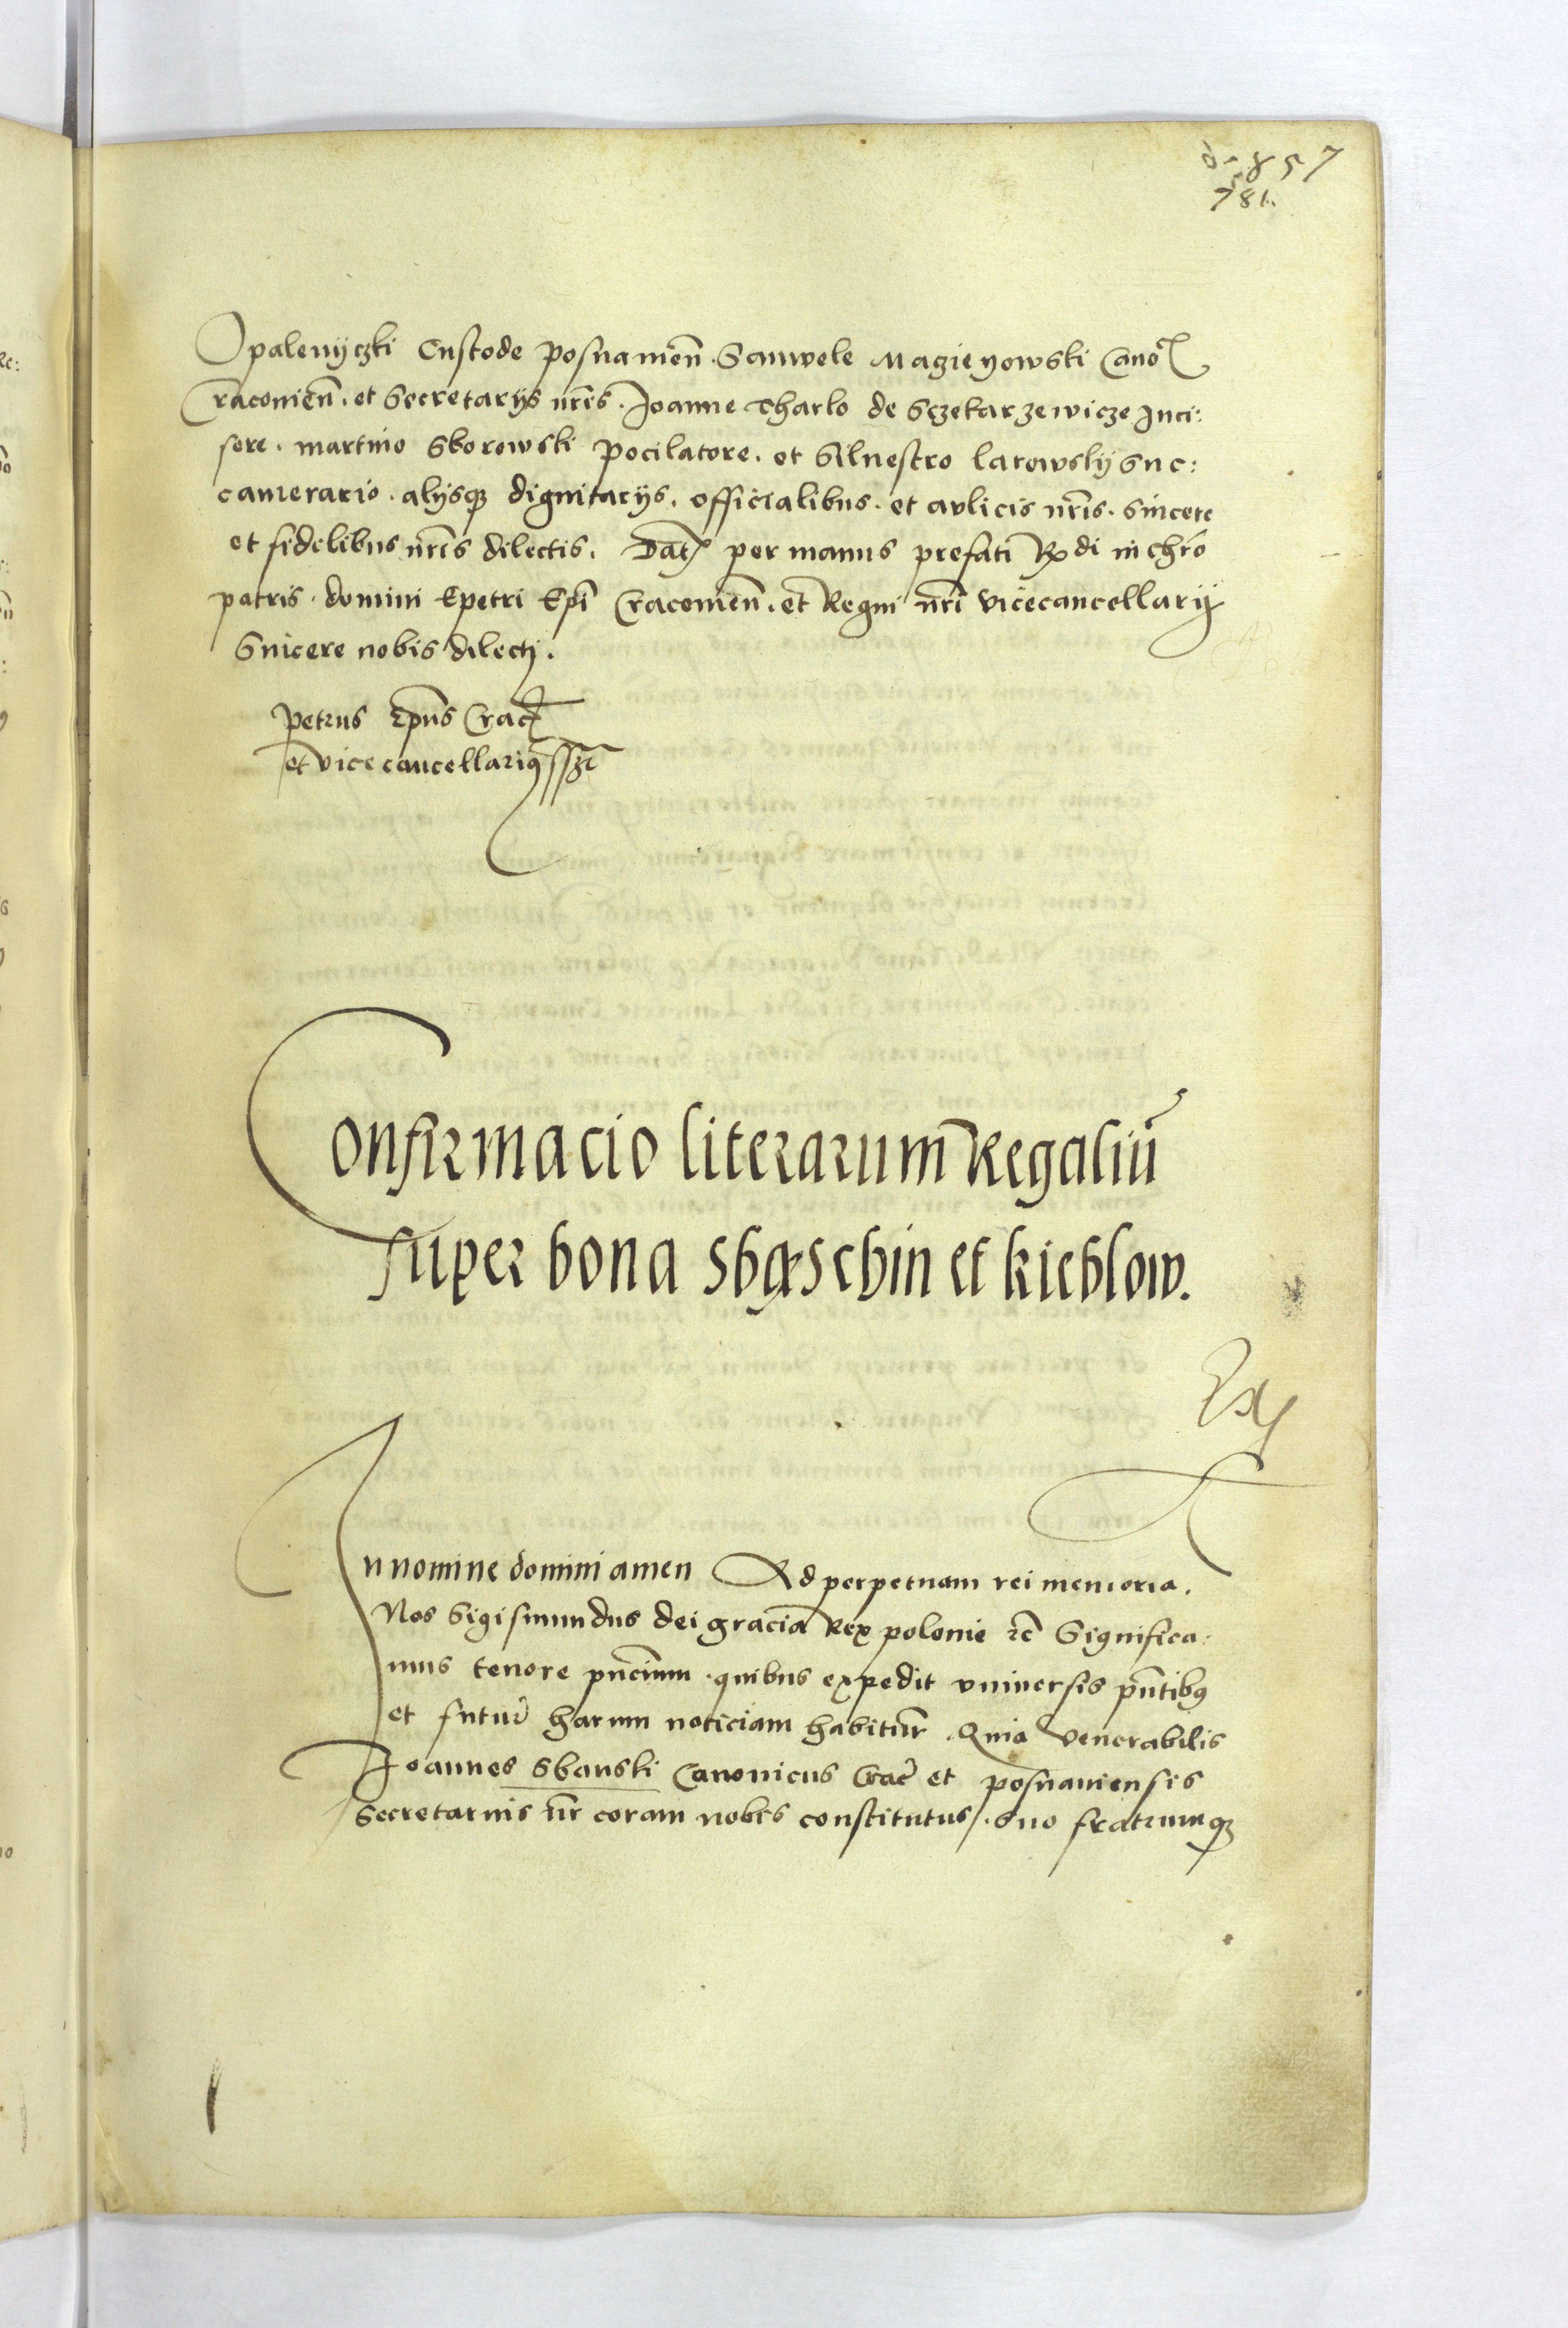 857
781.
Opalenyczki Custode posnamen̄. Samuele Maczieyowski Cano
Cracovien̄. et Secretarijs nr̄is. Joanne Tharlo de Sczekarzewicze Inci:
sore. martino Sborowski pocilatore. et Silvestro larowsky Suc:
camerario. alijsqꝫ dignitarijs. officialibus. et aulicis nr̄is. sincere
et fidelibus nr̄is dilectis. Dat̄ per manus prefati Rꝺi in chr̄o
patris. domini petri Epī Cracovien̄. et Regni nr̄i vicecancellarij
Sincere nobis dilecti.
petrus Ep̄us Crac̄
et vicecancellariꝰ sst
Confirmacio literarum Regaliū
super bona Sbąschin et kieblow.
In nomine domini amen Ad perpetuam rei memoria.
Nos Sigismundus dei gracia Rex polonie ꝛc̄ Significa:
mus tenore pn̄cium. quibus expedit universis pn̄tibꝰ
et futur̄ harum noticiam habitur̄. Quia venerabilis
Joannes Sbanski Canonicus Crac̄ et posnaniensis
Secretarius nr̄ coram nobis constitutus. Suo fratrumqꝫ